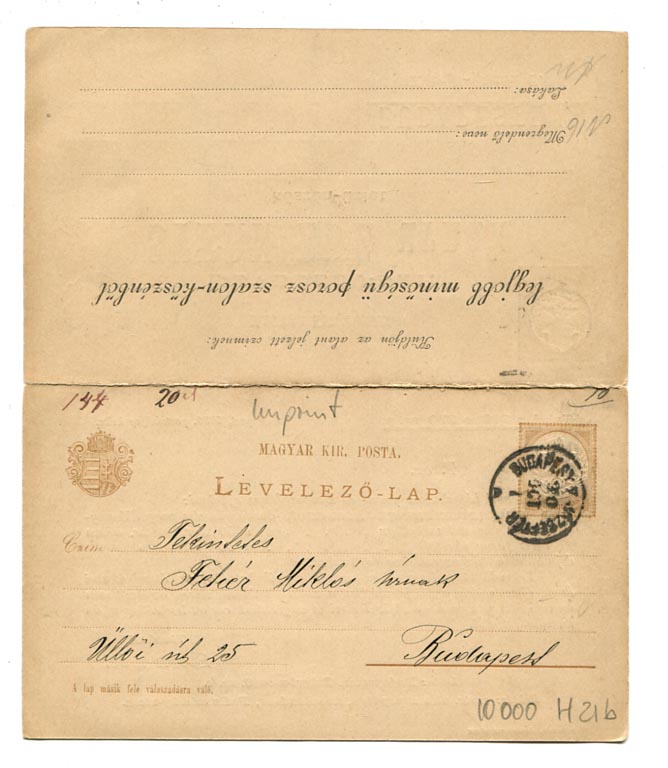 Lakása:
Megrendelő neve:
legjobb minőségü porosz szalon-kőszénből
Küldjön az alant jelzett czimnek:
144 20
Imprint
10
MAGYAR KIR. POSTA.
LEVELEZŐ-LAP.
BUDAPEST
JÓZSEFTÉR
Czim
Tekintetes
Fehér Miklós úrnak
Üllői út 25 Budapest
A lap másik fele válaszadásra való.
10000 H 21b